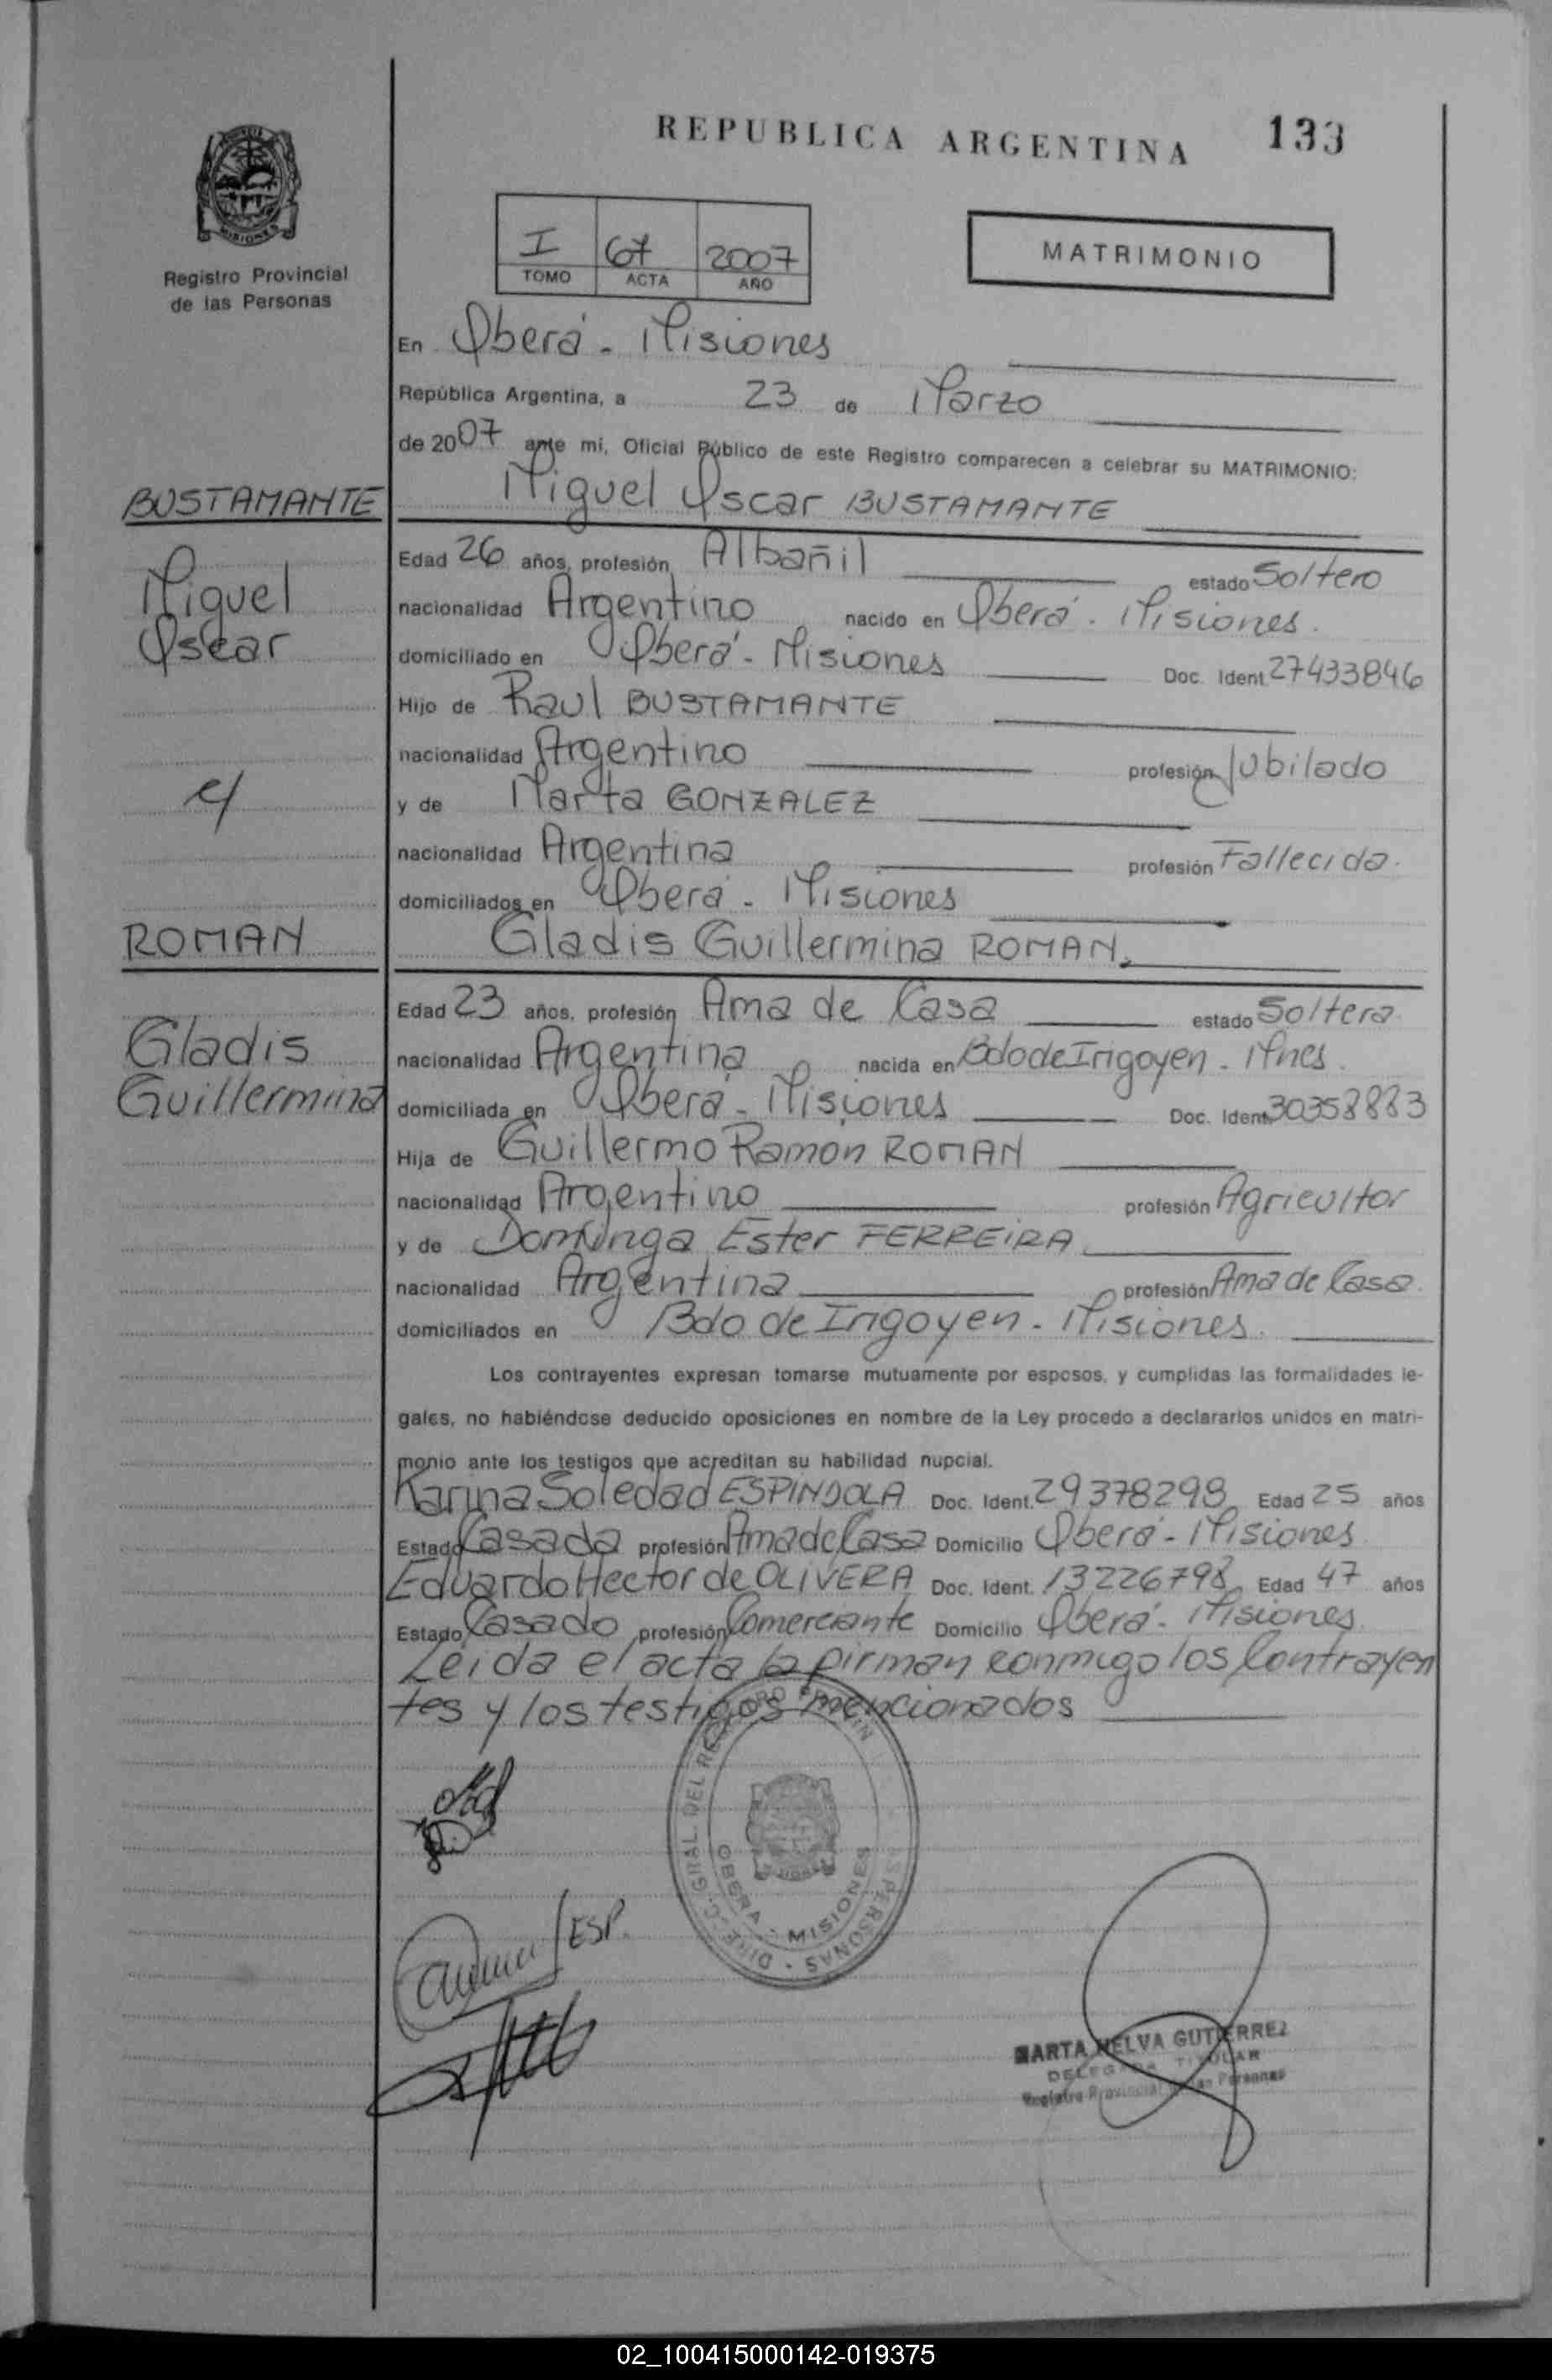 REPUBLICA ARGENTINA 133
MISIONES
Registro Provincial
de las Personas
I 67 2007
TOMO ACTA AÑO
MATRIMONIO
En Oberá - Misiones
República Argentina, a 23 de Marzo
de 2007 ante mi, Oficial Público de este Registro comparecen a celebrar su MATRIMONIO:
BUSTAMANTE Miguel Oscar BUSTAMANTE
Edad 26 años, profesión Albañil estado Soltero
Miguel nacionalidad Argentino nacido en Oberá - Misiones.
Oscar domiciliado en Oberá - Misiones Doc. Ident. 27433846
Hijo de Raul BUSTAMANTE
nacionalidad Argentino profesión Jubilado
c/ y de Marta GONZALEZ
nacionalidad Argentina profesión Fallecida.
domiciliados en Oberá - Misiones
ROMAN Gladis Guillermina ROMAN.
Edad 23 años, profesión Ama de Casa estado Soltera
Gladis nacionalidad Argentina nacida en Bdo de Irigoyen - Mnes.
Guillermina domiciliada en Oberá - Misiones Doc. Ident. 30358883
Hija de Guillermo Ramon ROMAN
nacionalidad Argentino profesión Agricultor
y de Dominga Ester FERREIRA
nacionalidad Argentina profesión Ama de Casa.
domiciliados en Bdo de Irigoyen - Misiones.
Los contrayentes expresan tomarse mutuamente por esposos, y cumplidas las formalidades le-
gales, no habiéndose deducido oposiciones en nombre de la Ley procedo a declararlos unidos en matri-
monio ante los testigos que acreditan su habilidad nupcial.
Karina Soledad ESPINDOLA Doc. Ident. 29378298 Edad 25 años
Estado Casada profesión Ama de Casa Domicilio Oberá - Misiones
Eduardo Hector de OLIVERA Doc. Ident. 13226798 Edad 47 años
Estado Casado profesión Comerciante Domicilio Oberá - Misiones.
Leida el acta la firman conmigo los Contrayen
tes y los testigos mencionados
OBERA - MISIONES
ESP.
MARTA NELVA GUTIERREZ
DELEGADA TITULAR
Registro Provincial de las Personas
02_100415000142-019375